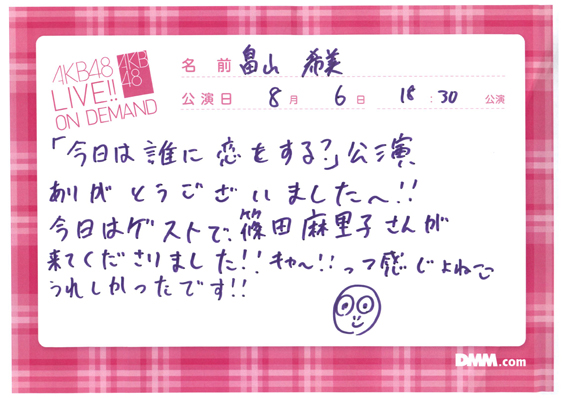 AKB48
LIVE!!
ON DEMAND
AKB
48
名前 畠山 希美
公演日 8月 6日 18:30 公演
「今日は誰に恋をする?」公演
ありがとうございました〜!!
今日はゲストで、篠田麻里子さんが
来てくださりました!! キャ〜!! って感じよねこ
うれしかったです!!
DMM.com